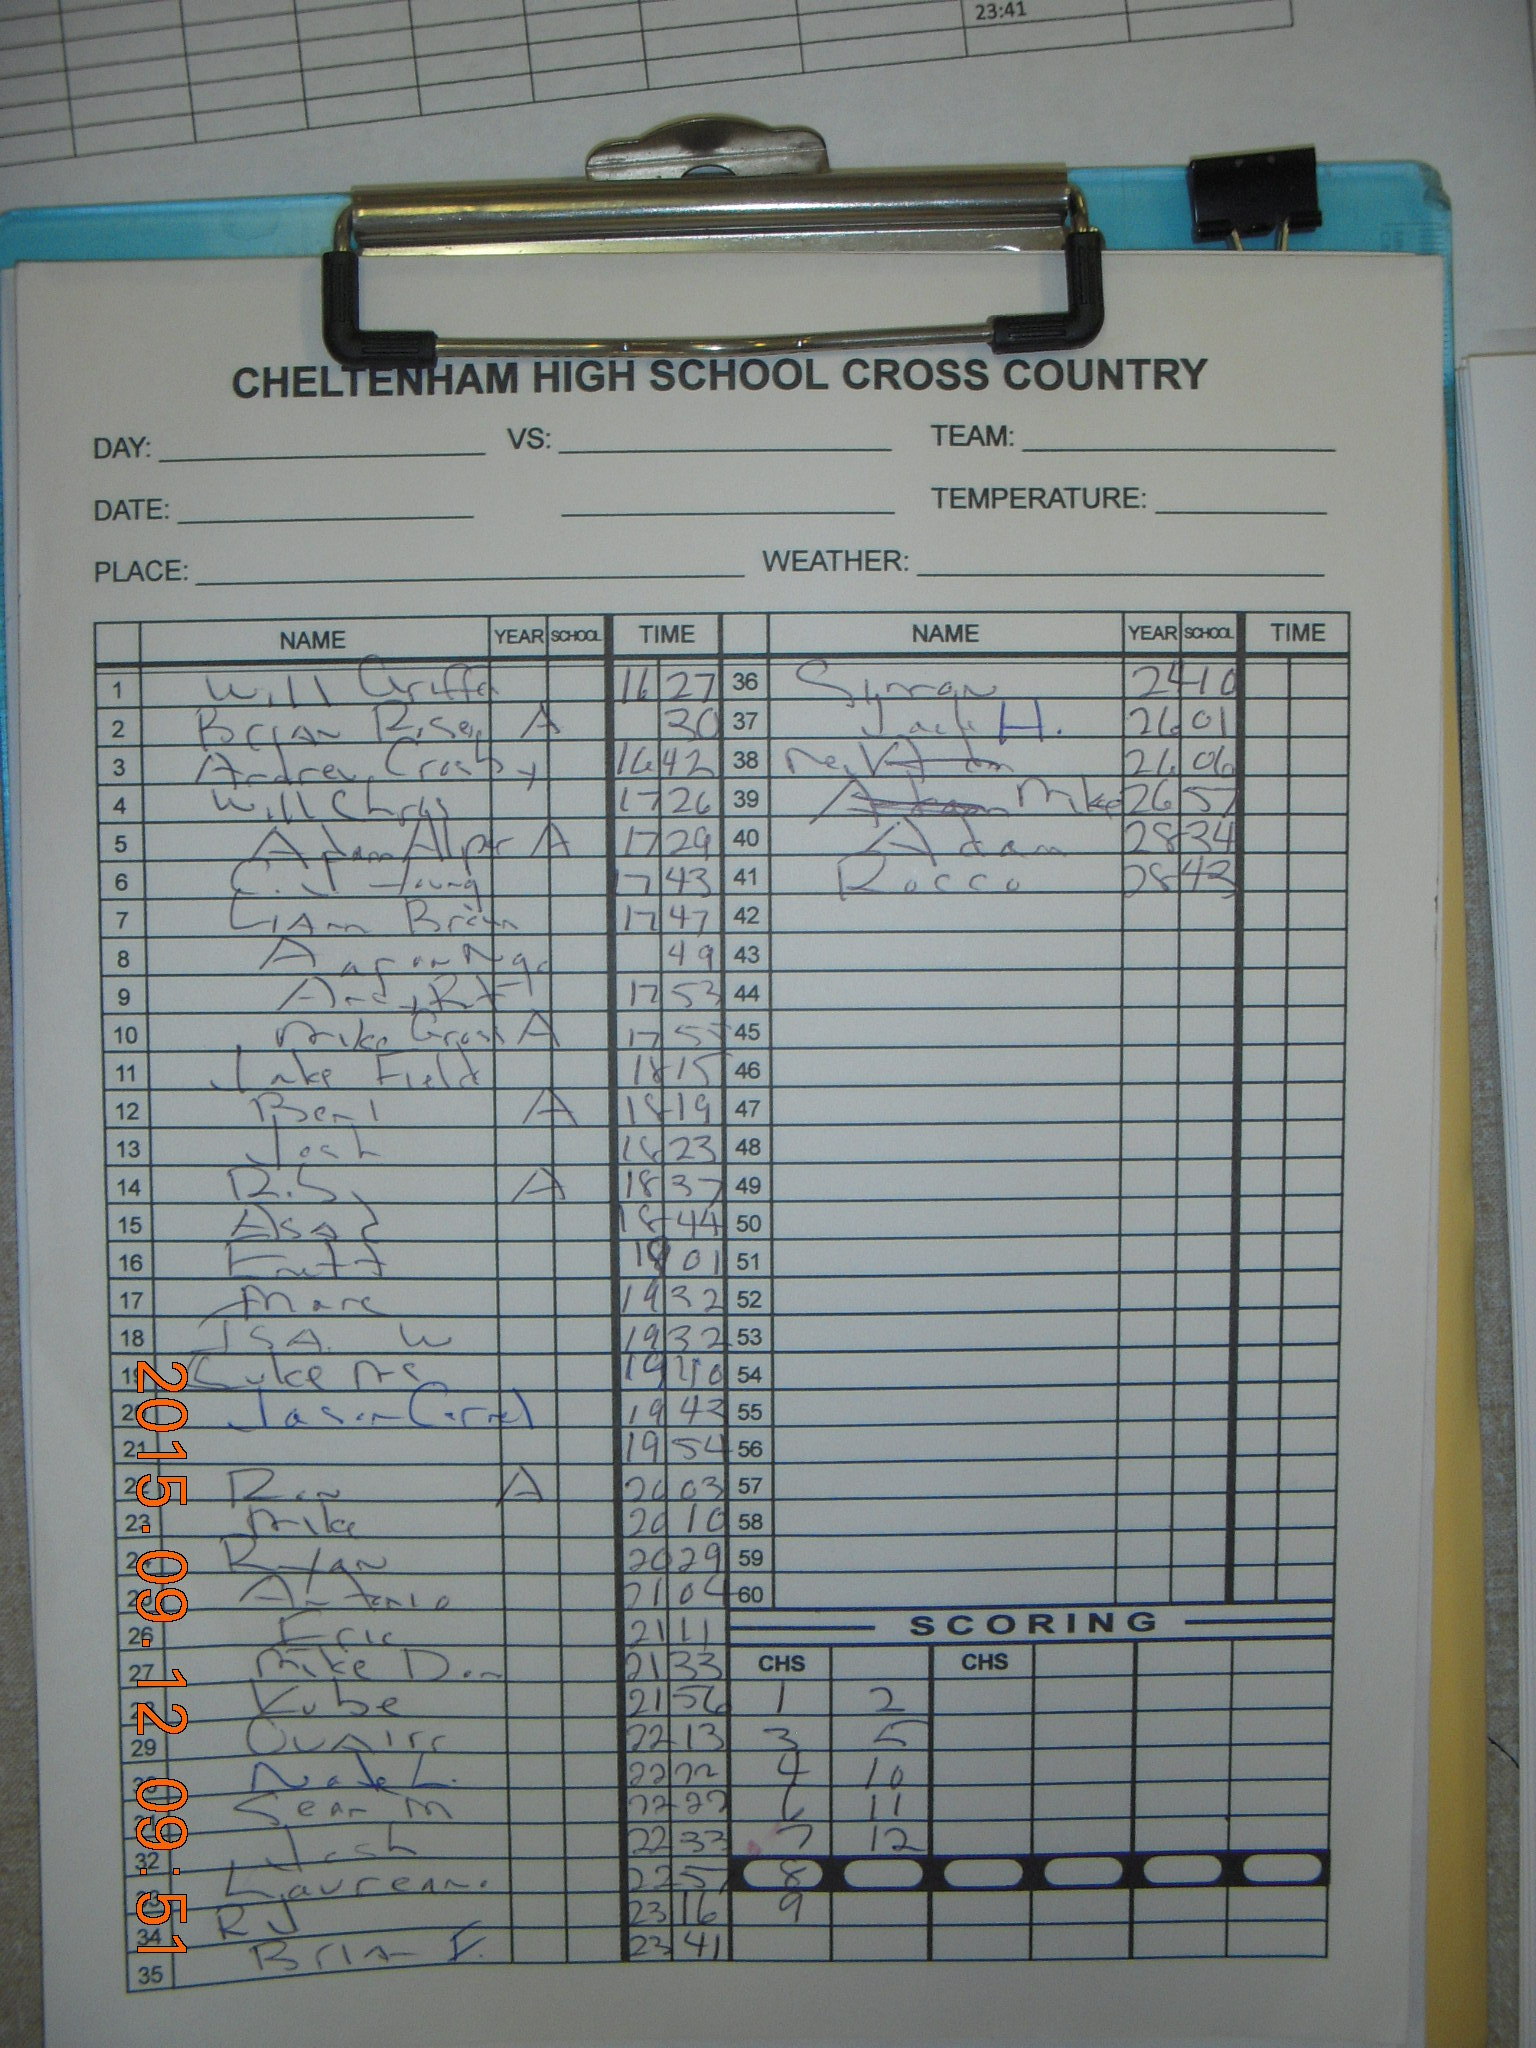 23:41
CHELTENHAM HIGH SCHOOL CROSS COUNTRY
DAY: VS: TEAM:
DATE: TEMPERATURE:
PLACE: WEATHER:
NAME YEAR SCHOOL TIME NAME YEAR SCHOOL TIME
1 Will 16 27 36 24 10
2 Bryan A 30 37 Jack H. 26 01
3 Andrew Crosby 16 42 38 26 06
4 Will 17 26 39 Mike 26 57
5 Adam A 17 29 40 Adam 28 34
6 C.J. Young 17 43 41 Rocco 28 43
7 Liam 17 47 42
8 49 43
9 17 53 44
10 Mike A 17 45
11 Jake Field 18 15 46
12 Ben A 18 19 47
13 Josh 18 23 48
14 A 18 37 49
15 Asa 18 44 50
16 01 51
17 Marc 19 32 52
18 W 19 32 53
19 Luke 19 40 54
20 Jason 19 43 55
21 19 54 56
22 A 20 03 57
23 Mike 20 10 58
24 Ryan 20 29 59
25 Antonio 21 04 60
26 Eric 21 11 SCORING
27 Mike 21 33 CHS CHS
28 Kube 21 56 1 2
29 22 13 3 5
30 Nate L. 22 22 4 10
31 Sean M 22 27 6 11
32 Josh 22 33 7 12
33 22 57 8
34 RJ 23 16 9
35 Brian F. 23 41
2015.09.12 09:51